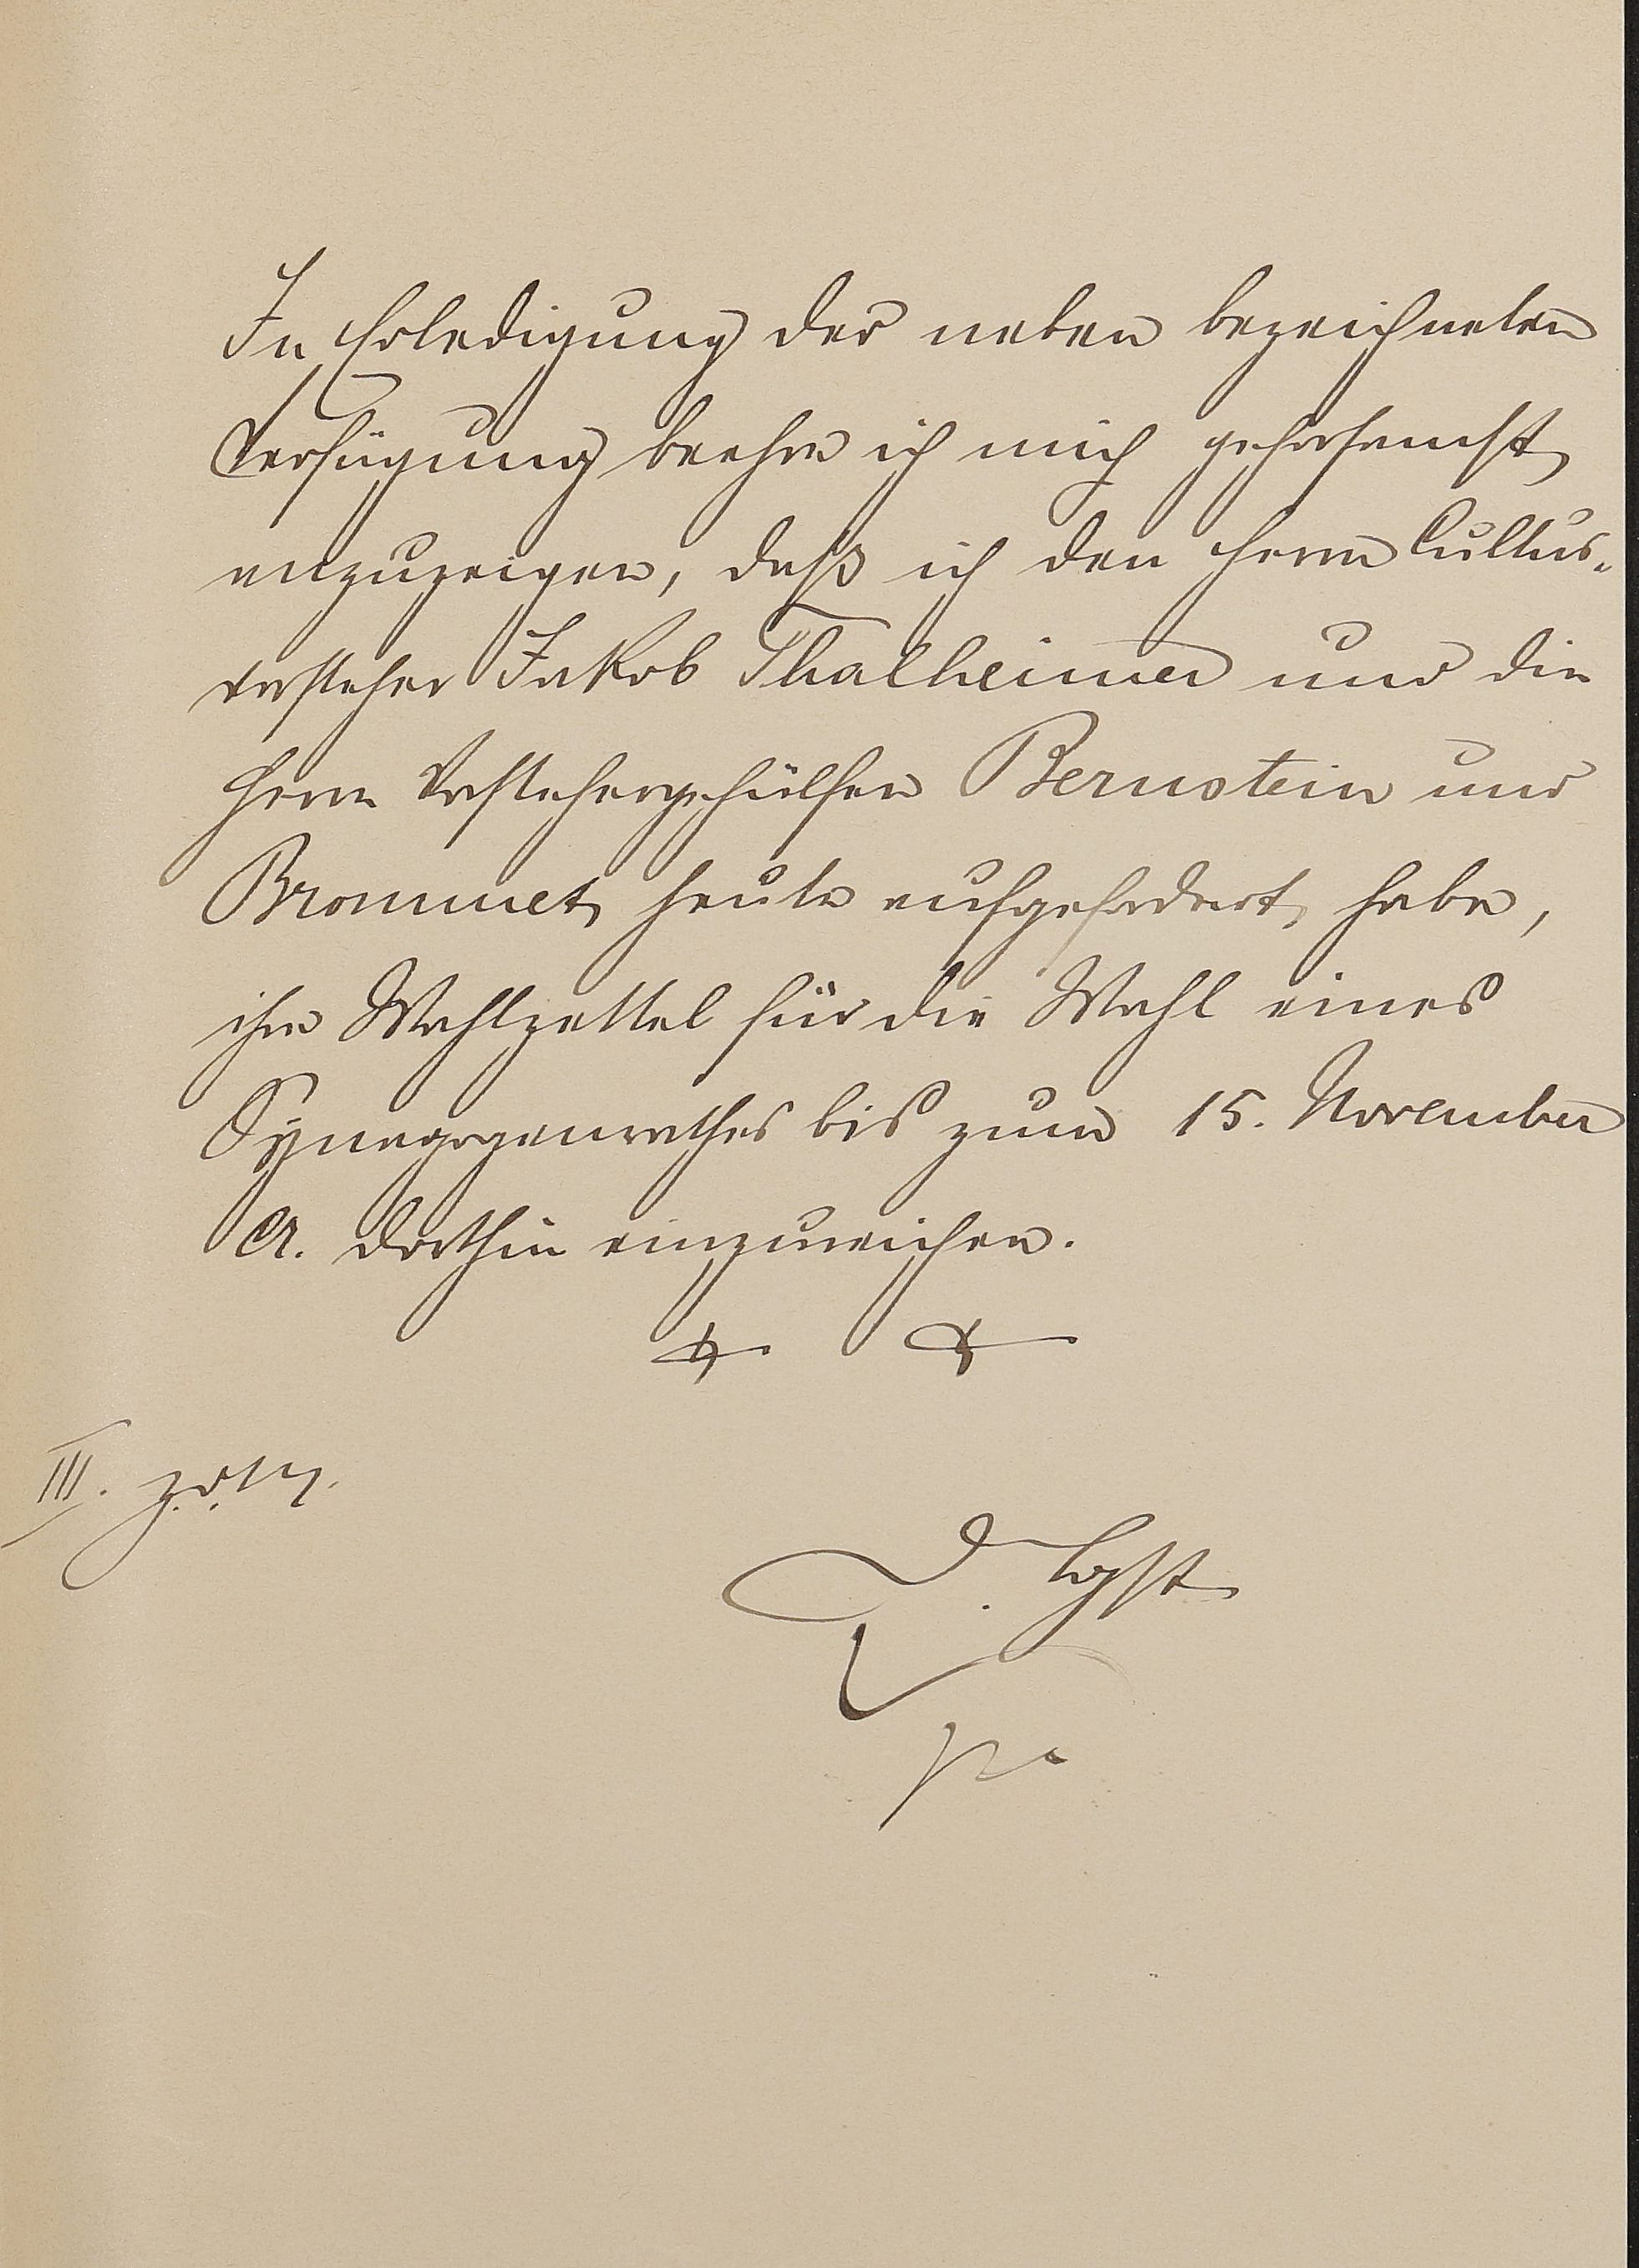 In Erledigung der neben bezeichneten
Verfügung beehre ich mich gehorsamst
anzuzeigen, daß ich den Herrn Cultus-
vorsteher Jakob Thalheimer und die
Herrn Vorstehergehülfen Bernstein und
Brommet heute aufgefordert habe,
ihre Wahlzettel für die Wahl eines
Synagogenrathes bis zum 15. November
cr. dorthin einzureichen.
III. z. d. A.
D.